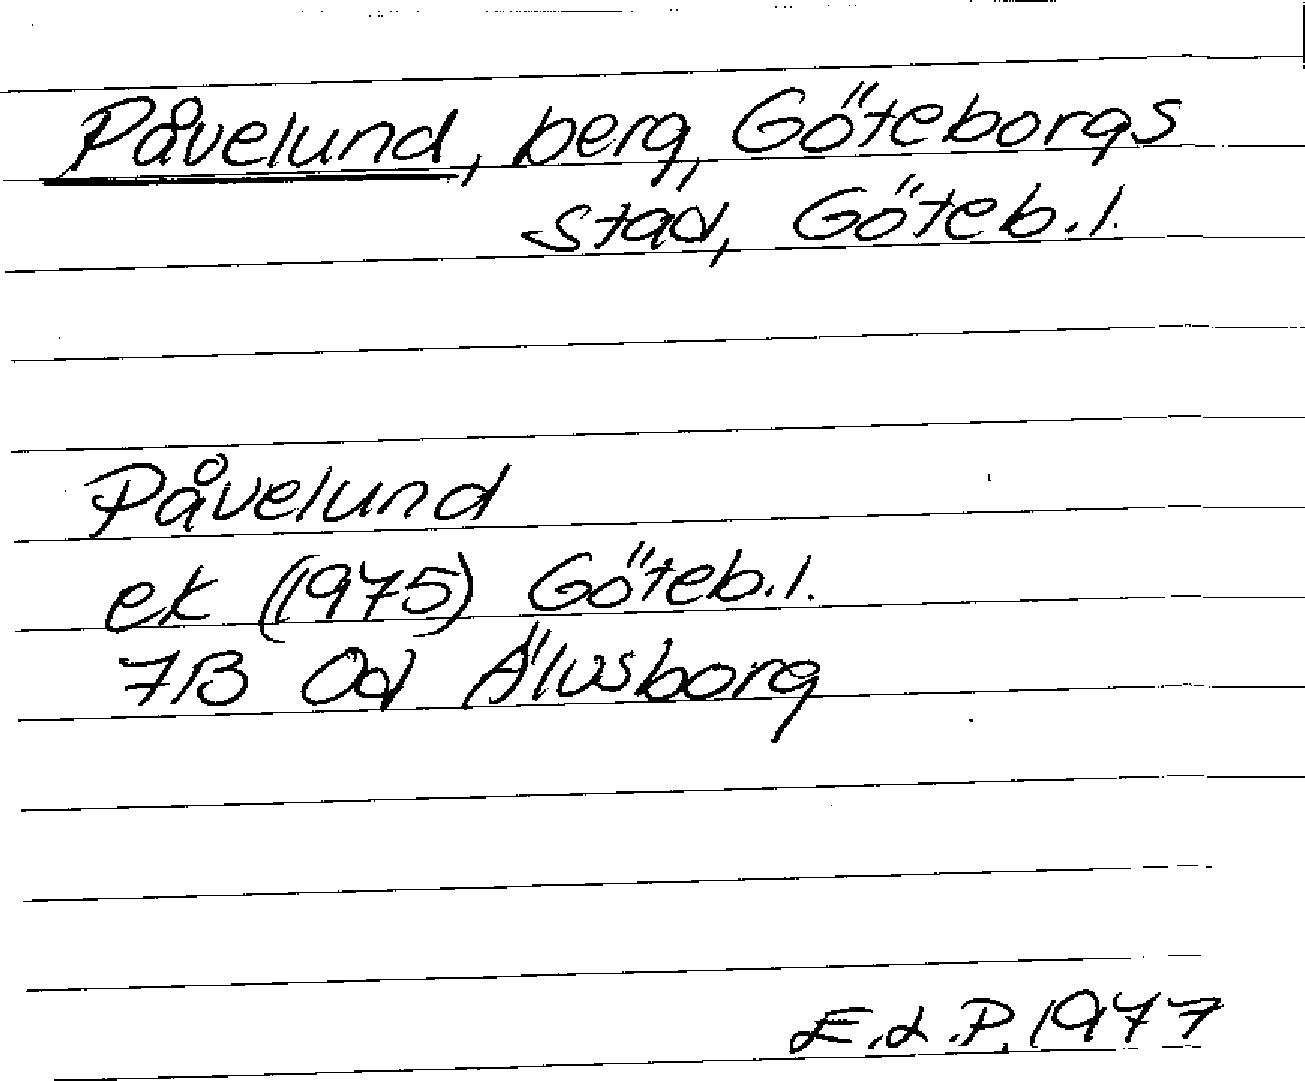 Påvelund, berg, Göteborgs
stad, Göteb.l.
Påvelund
ek (1975) Göteb.l.
7B Od Älvsborg
E.L.P. 1977